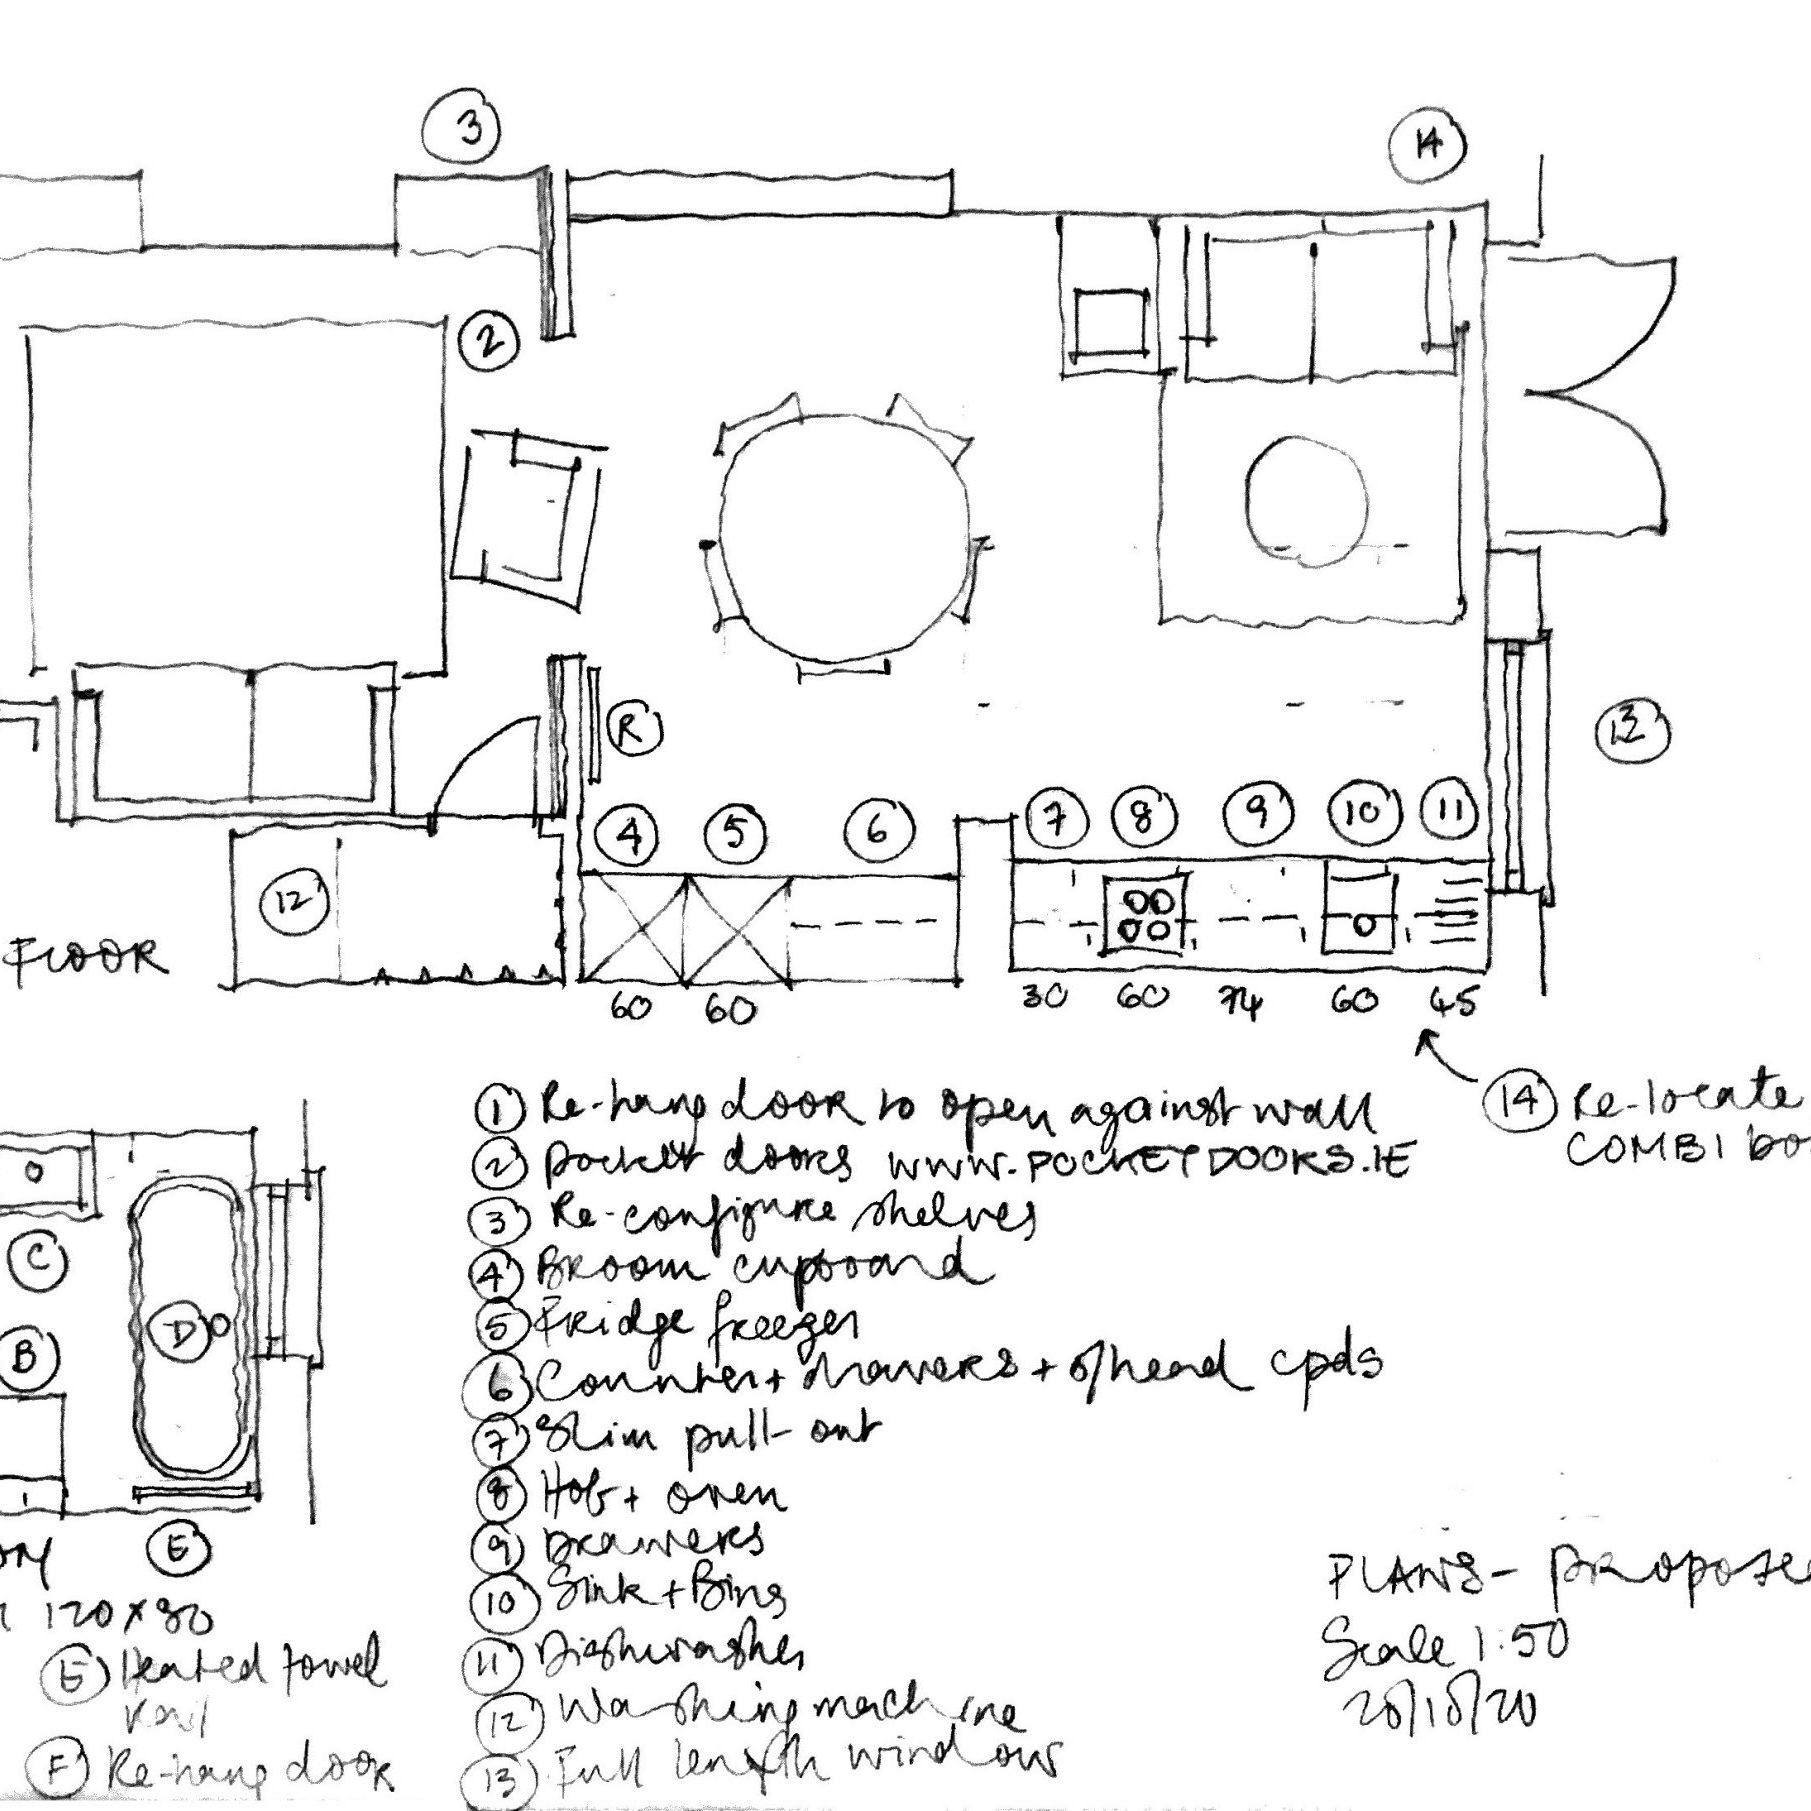 3
14
2
R
13
4
5
6
7
8
9
10
11
12
FLOOR
60
60
30
60
74
60
45
1 Re-hang door to open against wall
14 Re-locate
COMBI bo
2 pocket doors www.POCKETDOORS.IE
3 Re-configure shelves
C
4 Broom cupboard
D
5 Fridge freezer
B
6 Counter + drawers + o/head cpds
7 Slim pull-out
8 Hob + oven
E
9 Drawers
PLANS - Propose
10 Sink + Bins
120 x 80
Scale 1:50
11 Dishwasher
E Heated towel
rail
12 Washing machine
F Re-hang door
13 Full length window